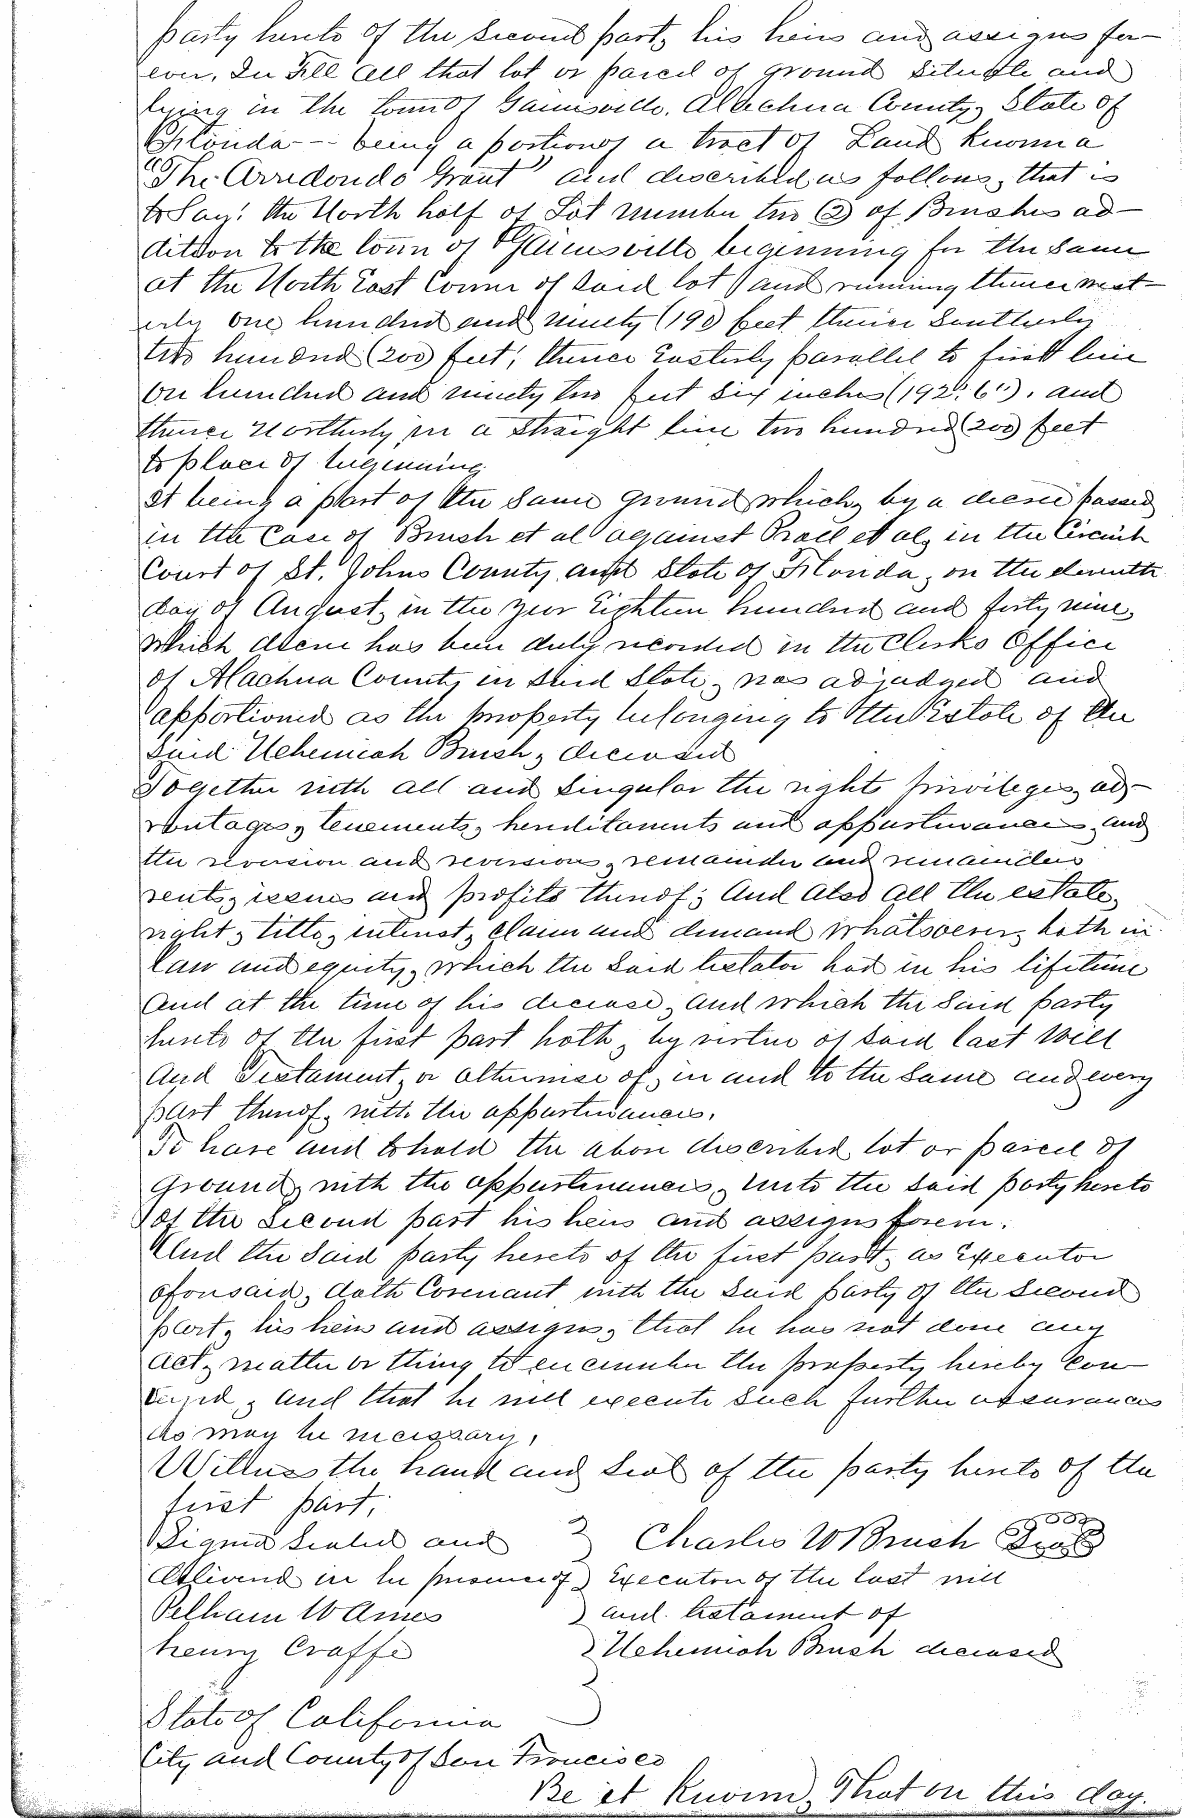 party hereto of the second part, his heirs and assigns for-
ever, In Fee all that lot or parcel of ground situate and
lying in the town of Gainesville, Alachua County, State of
Florida--- being a portion of a tract of Land known a
"The Arredondo Grant" and described as follows, that is
to say: the North half of Lot number two (2) of Brushes ad-
dition to the town of Gainesville beginning for the same
at the North East Corner of said lot and running thence west-
erly one hundred and ninety (190) feet thence Southerly
two hundred (200) feet, thence Easterly parallel to first line
on hundred and ninety two feet six inches (192' 6"), and
thence Northerly in a straight line two hundred (200) feet
to place of beginning.
It being a part of the same ground which, by a decree passed
in the Case of Brush et al against et al, in the Circuit
Court of St. Johns County and State of Florida, on the eleventh
day of August, in the year Eighteen hundred and forty nine,
which decree has been duly recorded in the Clerks Office
of Alachua County in said State, was adjudged and
apportioned as the property belonging to the Estate of the
said Nehemiah Brush, deceased
Together with all and singular the rights privileges, ad-
vantages, tenements, hereditaments and appurtenances, and
the reversion and reversions, remainder and remainders
rents, issues and profits thereof; And also all the estate,
right, title, interest, claim and demand whatsoever, both in
law and equity, which the said testator had in his lifetime
and at the time of his decease, and which the said party
hereto of the first part hath, by virtue of said last Will
and Testament, or otherwise of, in and to the same and every
part thereof, with the appurtenances.
To have and to hold the above described lot or parcel of
ground, with the appurtenances, unto the said party hereto
of the second part his heirs and assigns forever.
And the said party hereto of the first part, as Executor
aforesaid, doth Covenant with the said party of the second
part, his heirs and assigns, that he has not done any
act, matter or thing to encumber the property hereby con-
veyed, and that he will execute such further assurances
as may be necessary,
Witness the hand and seal of the party hereto of the
first part,
Signed Sealed and } Charles W Brush Seal
delivered in the presence of } Executor of the last will
Pelham W Ames } and testament of
Henry Craffe } Nehemiah Brush deceased
State of California }
City and County of San Francisco
Be it known, That on this day.